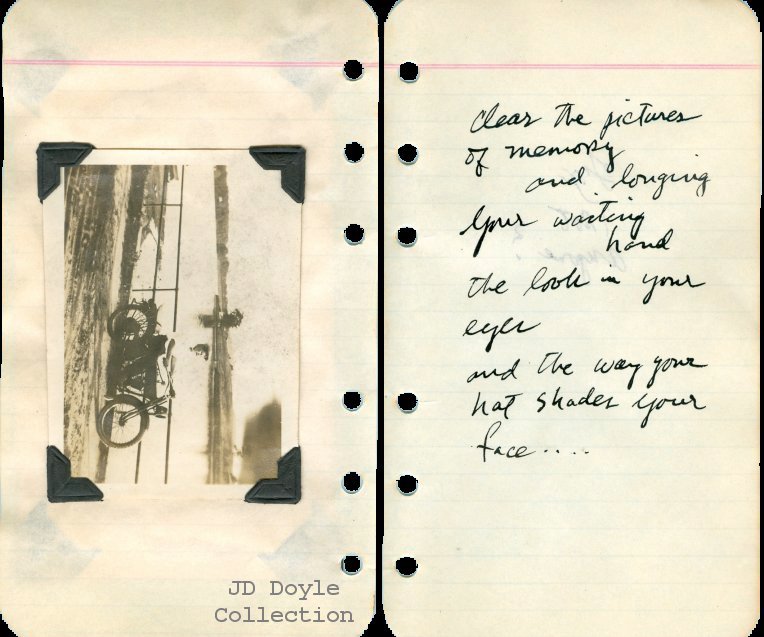 clear the pictures
of memory
and longing
Your waiting
hand
the look in your
eyes
and the way your
hat shades your
face....
JD Doyle
Collection